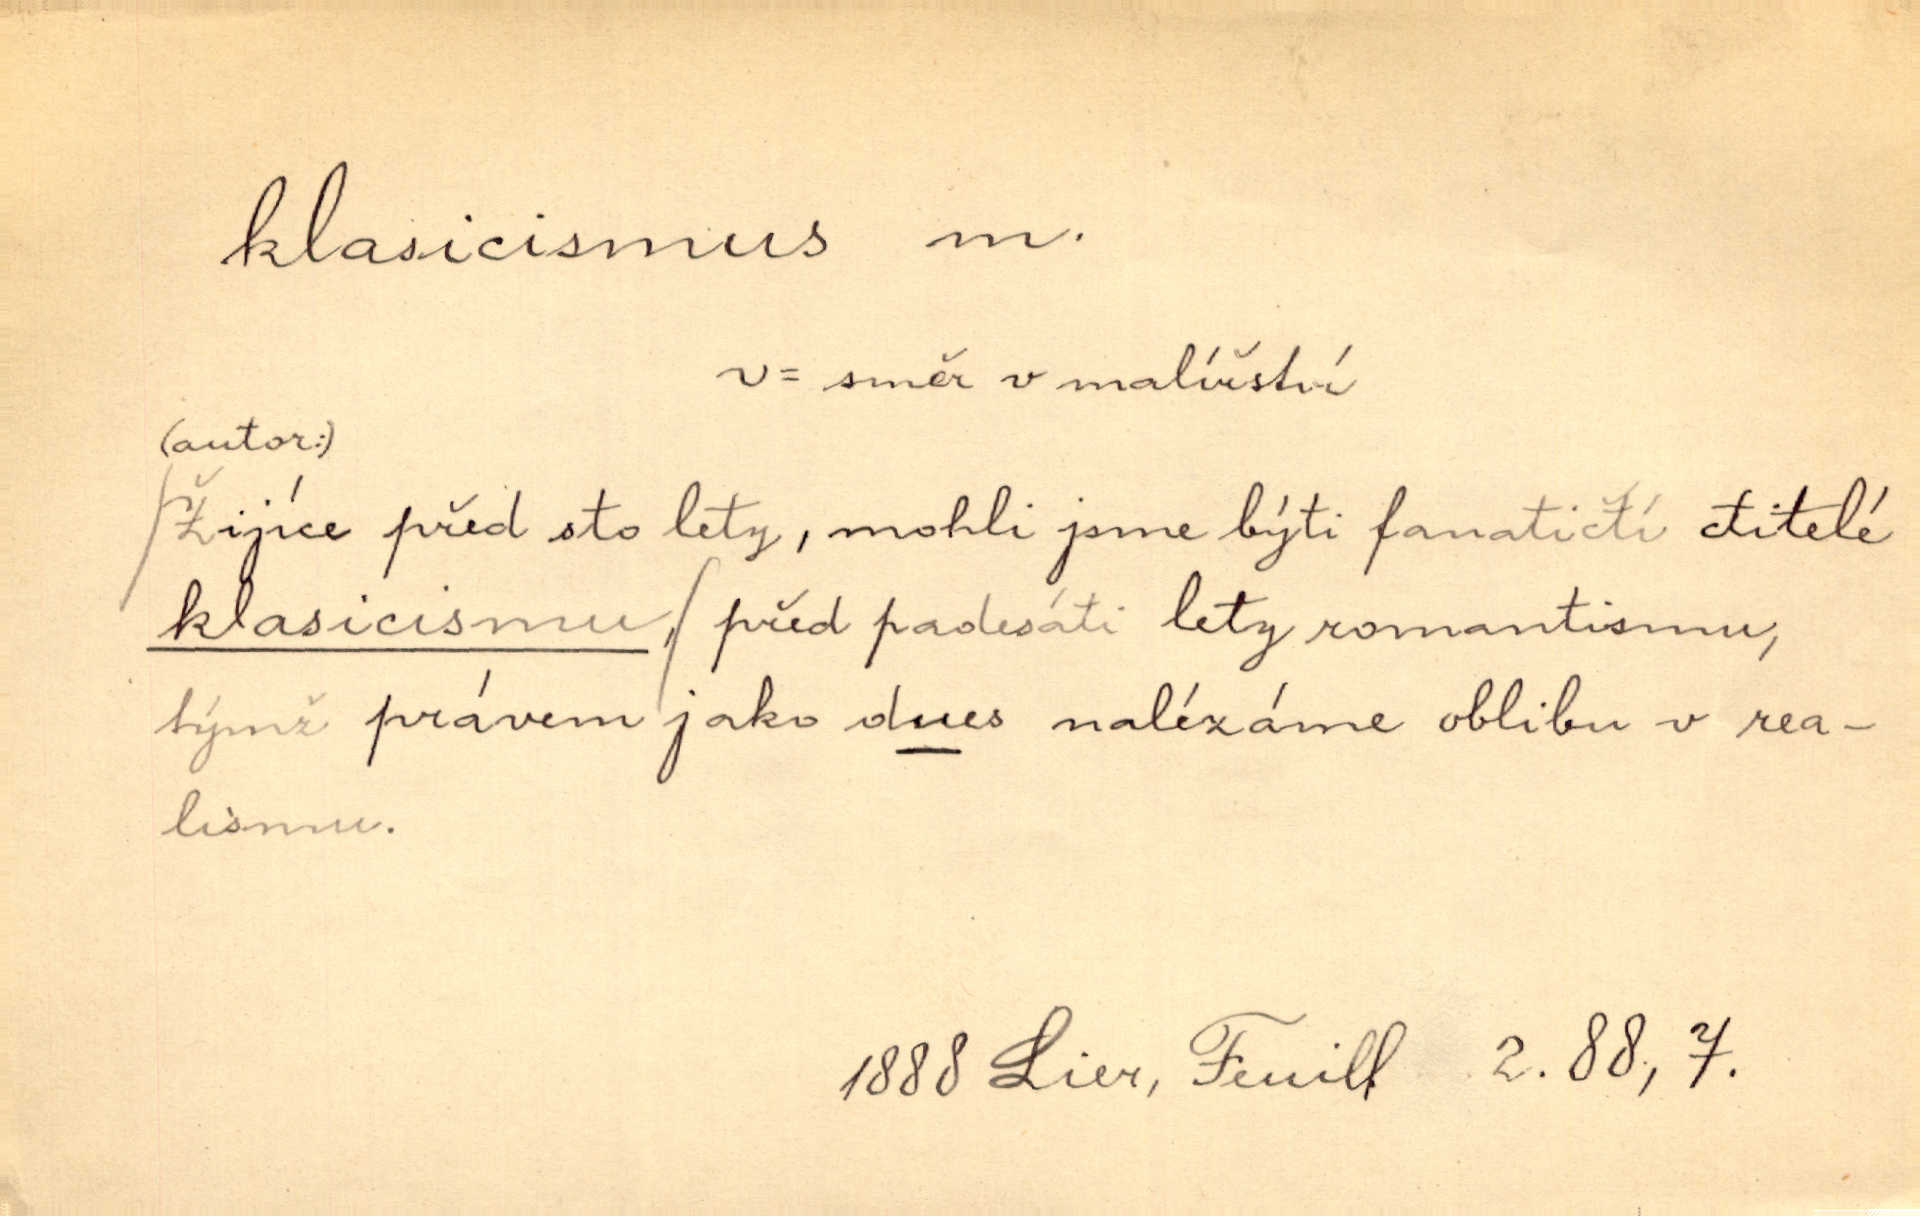 klasicismus m.
v = směr v malířství
(autor:)
/Žijíce před sto lety, mohli jsme býti fanatičtí ctitelé
klasicismu,/ před padesáti lety romantismu,
týmž právem jako dnes nalézáme oblibu v rea-
lismu.
1888 Lier, Feuill 2. 88, 7.